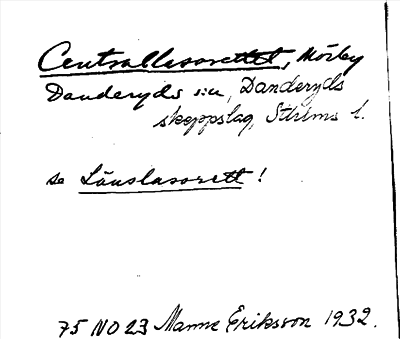 Centrallasarettet, Mörby
Danderyds s:n, Danderyds
skeppslag, Sthlms l.
se Länslasarett!
75 NO 23 Manne Eriksson 1932.